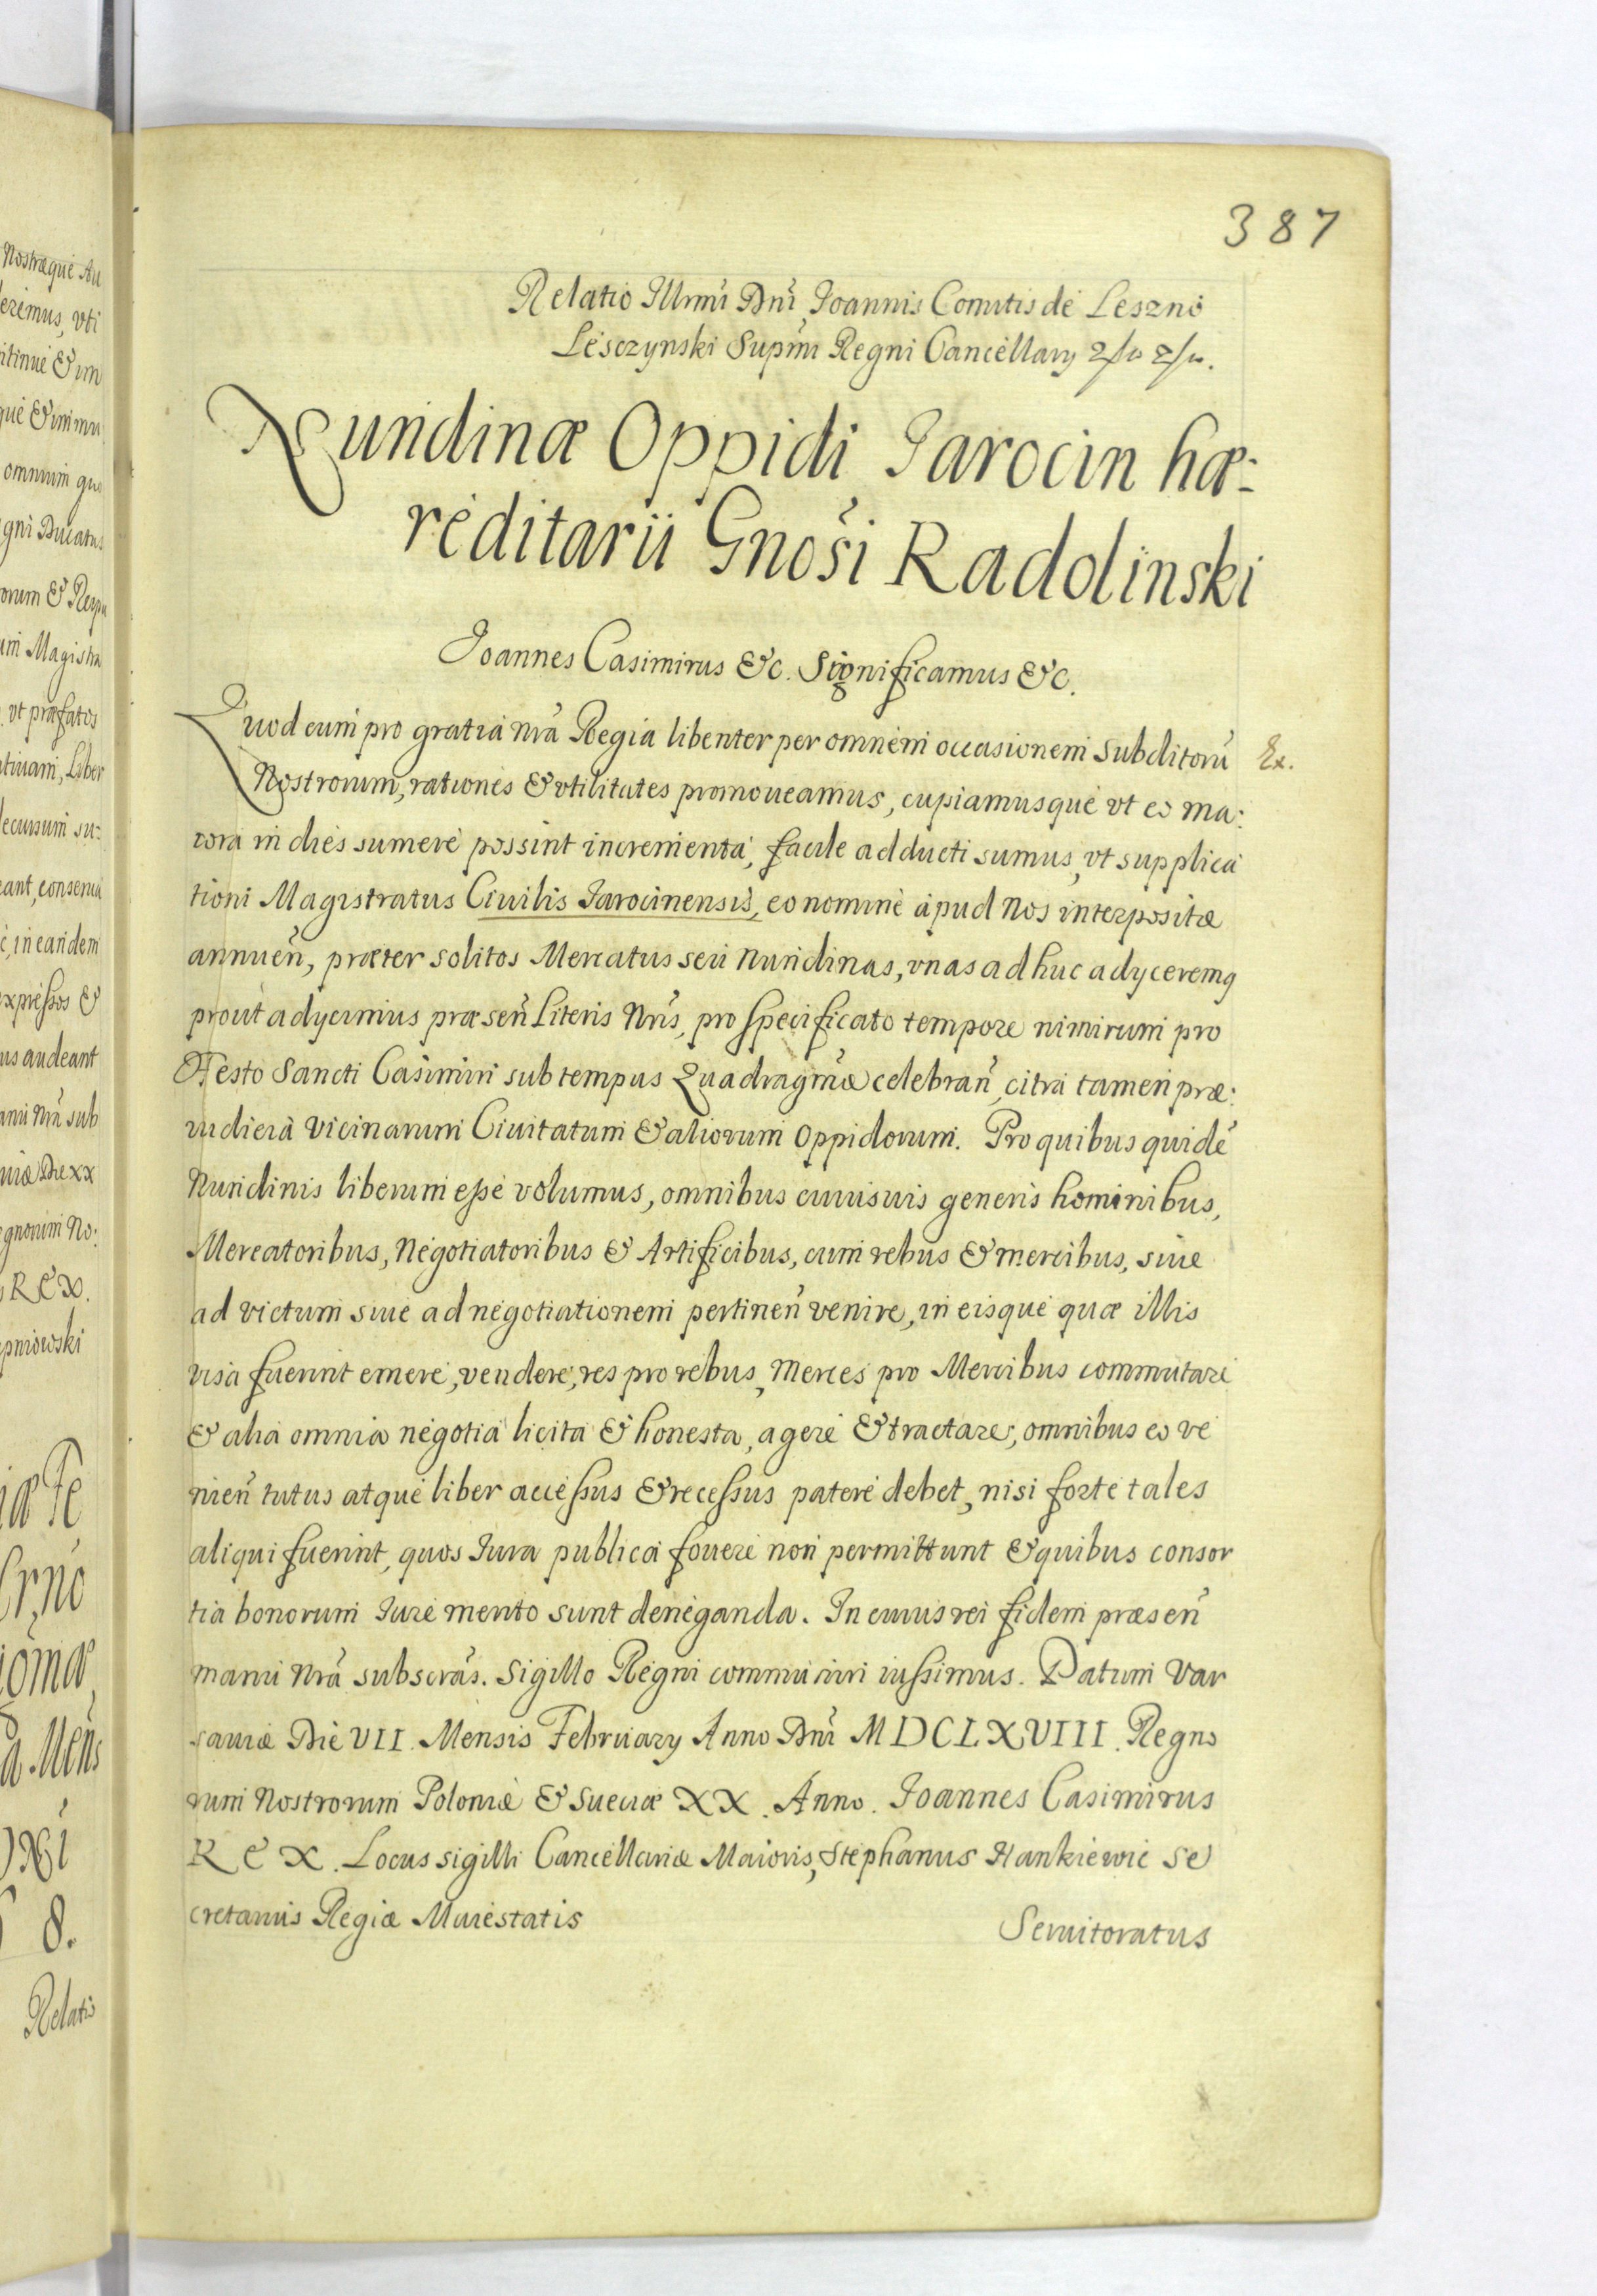 387
Relatio Illrmi Dni Joannis Comitis de Leszno
Lesczynski Supmi Regni Cancellarÿ
Nundinæ Oppidi Jarocin hæ-
reditarii Gnosi Radolinski
Joannes Casimirus &c. Significamus &c.
Quod cum pro gratia nra Regia libenter per omnem occasionem subditorū Ex.
Nostrorum, rationes & vtilitates promoueamus, cupiamusque vt eo ma:
iora in dies sumere possint incrementa, facile adducti sumus, vt supplica
tioni Magistratus Ciuilis Jarocinensis, eo nomine apud Nos interpositæ
annuen̄, præter solitos Mercatus seu Nundinas, vnas adhuc adÿceremq
prout adÿcimus præsen̄ Literis Nris, pro specificato tempore nimirum pro
Festo Sancti Casimiri sub tempus Quadragmæ celebran̄, citra tamen præ:
iudicia vicinarum Ciuitatum & aliorum Oppidorum. Pro quibus quidē
Nundinis liberum esse volumus, omnibus cuiusuis generis hominibus,
Mercatoribus, Negotiatoribus & Artificibus, cum rebus & mercibus, siue
ad victum siue ad negotiationem pertinen̄ venire, in eisque quæ illis
visa fuerint emere, vendere, res pro rebus, Merces pro Mercibus commutare
& alia omnia negotia licita & honesta, agere & tractare, omnibus eo ve
nien̄ tutus atque liber accessus & recessus patere debet, nisi forte tales
aliqui fuerint, quos Jura publica fouere non permittunt & quibus consor
tia bonorum Jure merito sunt deneganda. In cuius rei fidem præsen̄
manu Nra subscras. Sigillo Regni communiri iussimus. Datum Var
sauiæ Die VII. Mensis Februarÿ Anno Dni MDCLXVIII. Regno
rum Nostrorum Poloniæ & Sueciæ XX. Anno. Joannes Casimirus
REX. Locus sigilli Cancellariæ Maioris, Stephanus Hankiewic Se
cretarius Regiæ Maiestatis
Seruitoratus